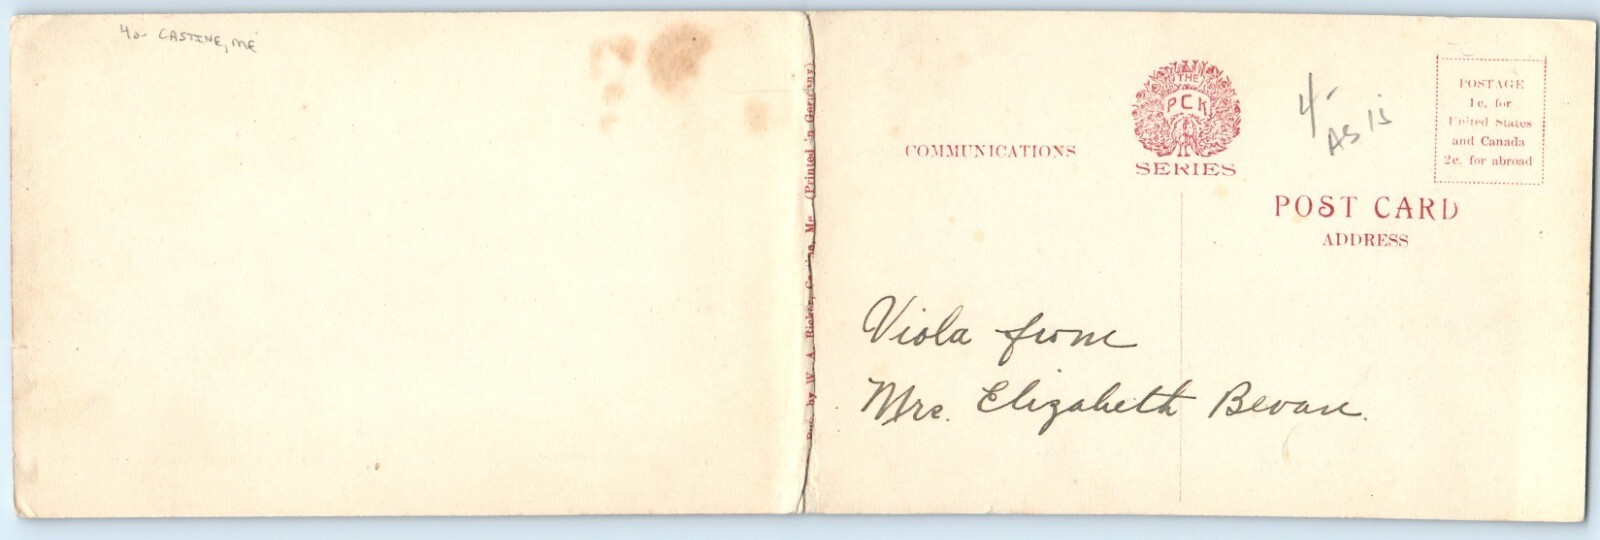 4- CASTINE, ME
Pub. by W. A. Ricker, Castine, Me. (Printed in Germany)
COMMUNICATIONS
THE
PCK
SERIES
4-
AS IS
POSTAGE
1c. for
United States
and Canada
2c. for abroad
POST CARD
ADDRESS
Viola from
Mrs. Elizabeth Bevan.